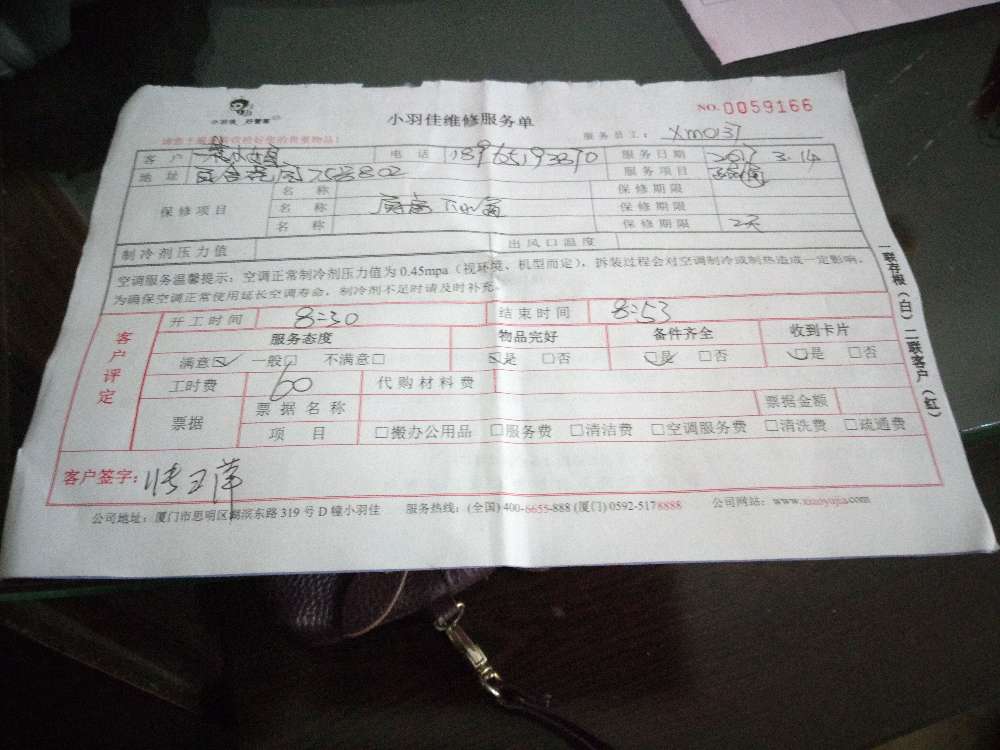 小羽佳 好管家
小羽佳维修服务单
NO. 0059166
服务员工: XM0137
客户 小姐 电话 服务日期 2017 3.14
地址 服务项目
保修项目
名称 保修期限
名称 厨房下水道 保修期限
名称 保修期限 2天
制冷剂压力值 出风口温度
空调服务温馨提示:空调正常制冷剂压力值为 0.45mpa(视环境、机型而定),拆装过程会对空调制冷或制热造成一定影响,
为确保空调正常使用延长空调寿命,制冷剂不足时请及时补充。
客户评定
开工时间 8:30 结束时间 8:53
服务态度 物品完好 备件齐全 收到卡片
满意☑ 一般□ 不满意□ ☑是 □否 ☑是 □否 ☑是 □否
工时费 60 代购材料费
票据 票据名称 票据金额
项目 □搬办公用品 □服务费 □清洁费 □空调服务费 □清洗费 □疏通费
客户签字:
公司地址:厦门市思明区湖滨东路 319 号 D 幢小羽佳 服务热线:(全国) 400-6655-888 (厦门) 0592-5178888 公司网站:www.xiaoyujia.com
一联存根(白) 二联客户(红)